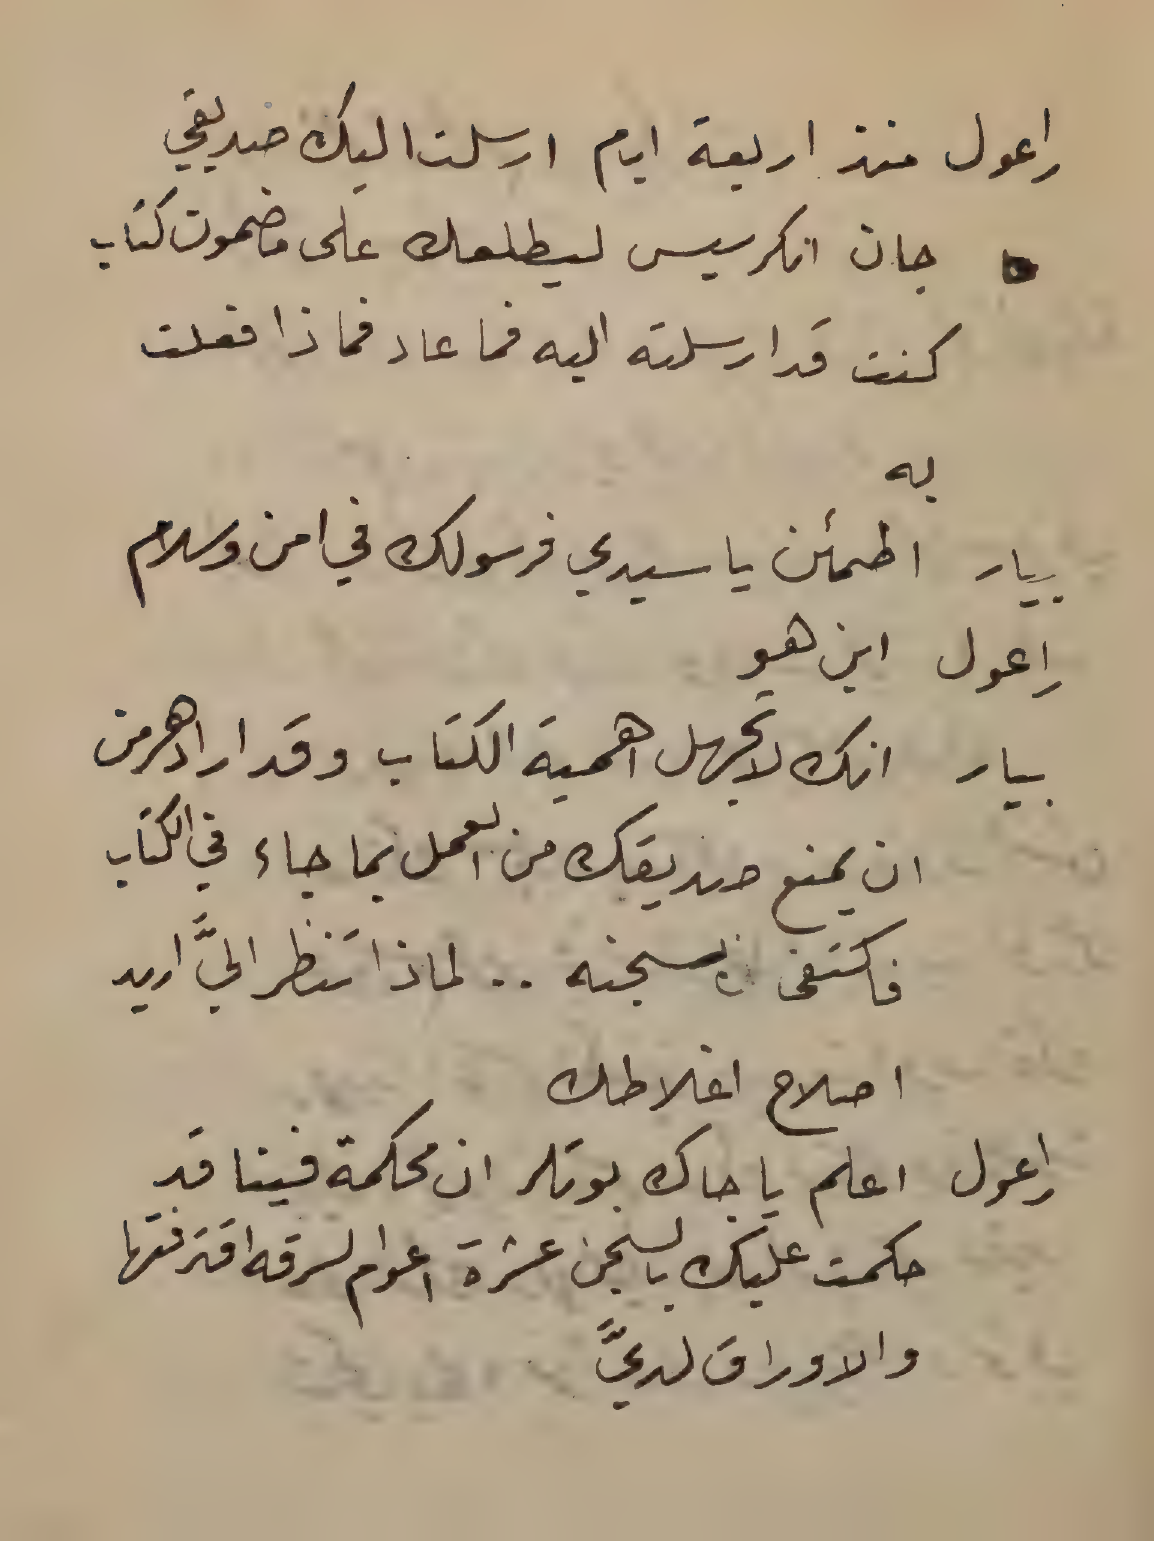 راعول منذ اربعة ايام ارسلت اليك صديقي
جان انكرسيس ليطلعك على مضمون كتاب
كنت قد ارسلته اليه فما عاد فماذا فعلت
به
بيار اطمئن يا سيدي فرسولك في امن وسلام
راعول اين هو
بيار انك لا تجهل اهمية الكتاب وقد اراد هرمن
ان يمنع صديقك من العمل بما جاء في الكتاب
فاكتفى بسجنه .. لماذا تنظر اليَّ اريد
اصلاح اغلاطك
راعول اعلم يا جاك بوتلر ان محكمة فينا قد
حكمت عليك بالسجن عشرة اعوام لسرقه اقترفتها
والاوراق لديَّ